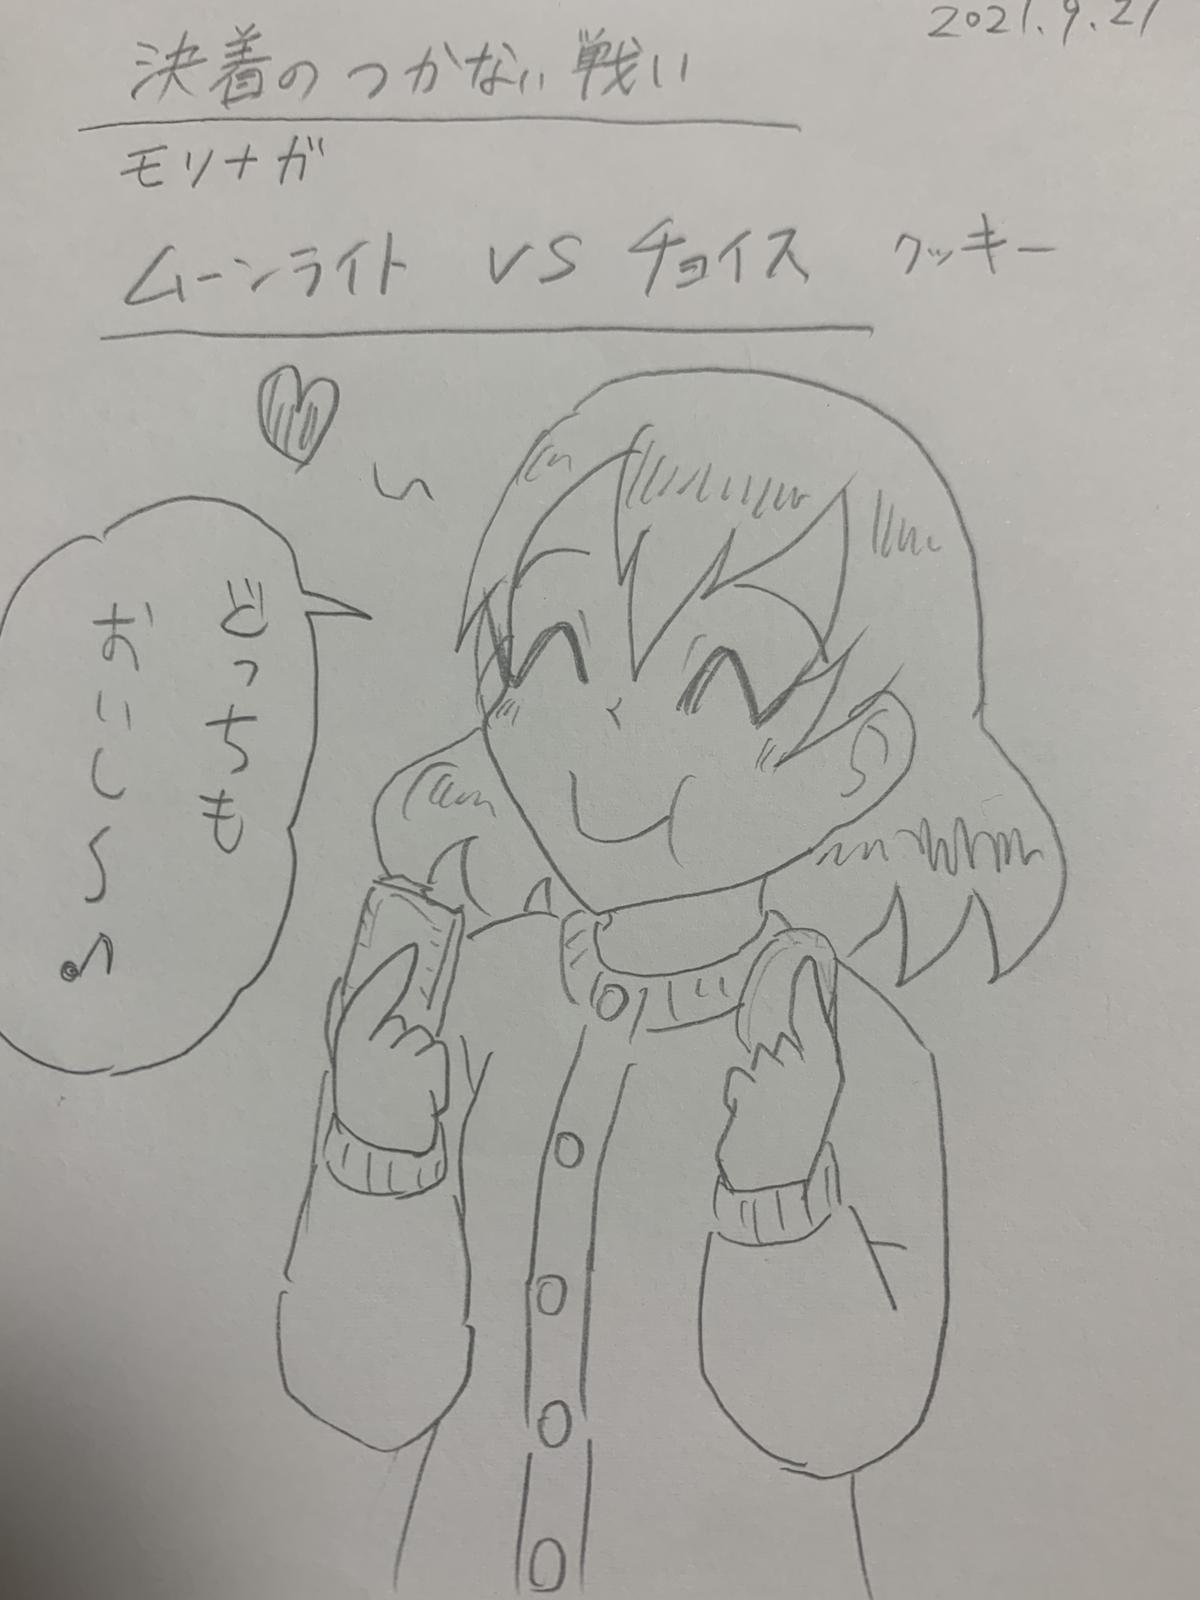 2021.9.21
決着のつかない戦い
モリナガ
ムーンライト VS チョイス クッキー
どっちも
おいし〜♪